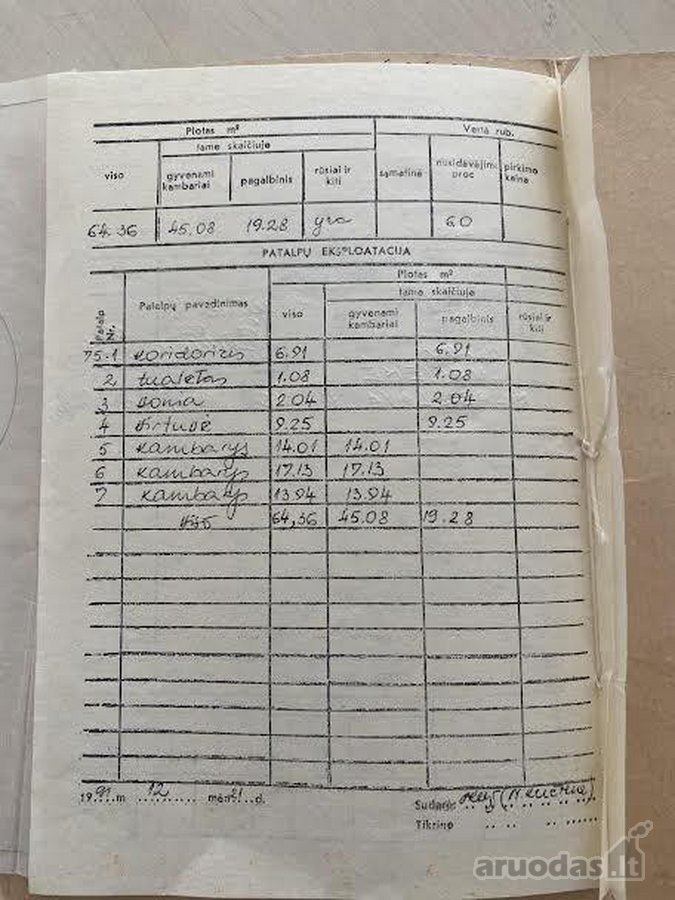 Plotas m² Vertė rub.
viso tame skaičiuje sąmatinė nusidėvėjimo proc pirkimo kaina
gyvenami kambariai pagalbinis rūsiai ir kiti
64.36 45.08 19.28 yra 60
PATALPŲ EKSPLOATACIJA
Patalp. Nr. Patalpų pavadinimas Plotas m²
viso tame skaičiuje rūsiai ir kiti
gyvenami kambariai pagalbinis
75-1 koridorius 6.91 6.91
2 tualetas 1.08 1.08
3 vonia 2.04 2.04
4 virtuvė 9.25 9.25
5 kambarys 14.01 14.01
6 kambarys 17.13 17.13
7 kambarys 13.94 13.94
viso 64,36 45.08 19.28
1991 m 12 mėn d.
Sudarė
Tikrino
aruodas.lt